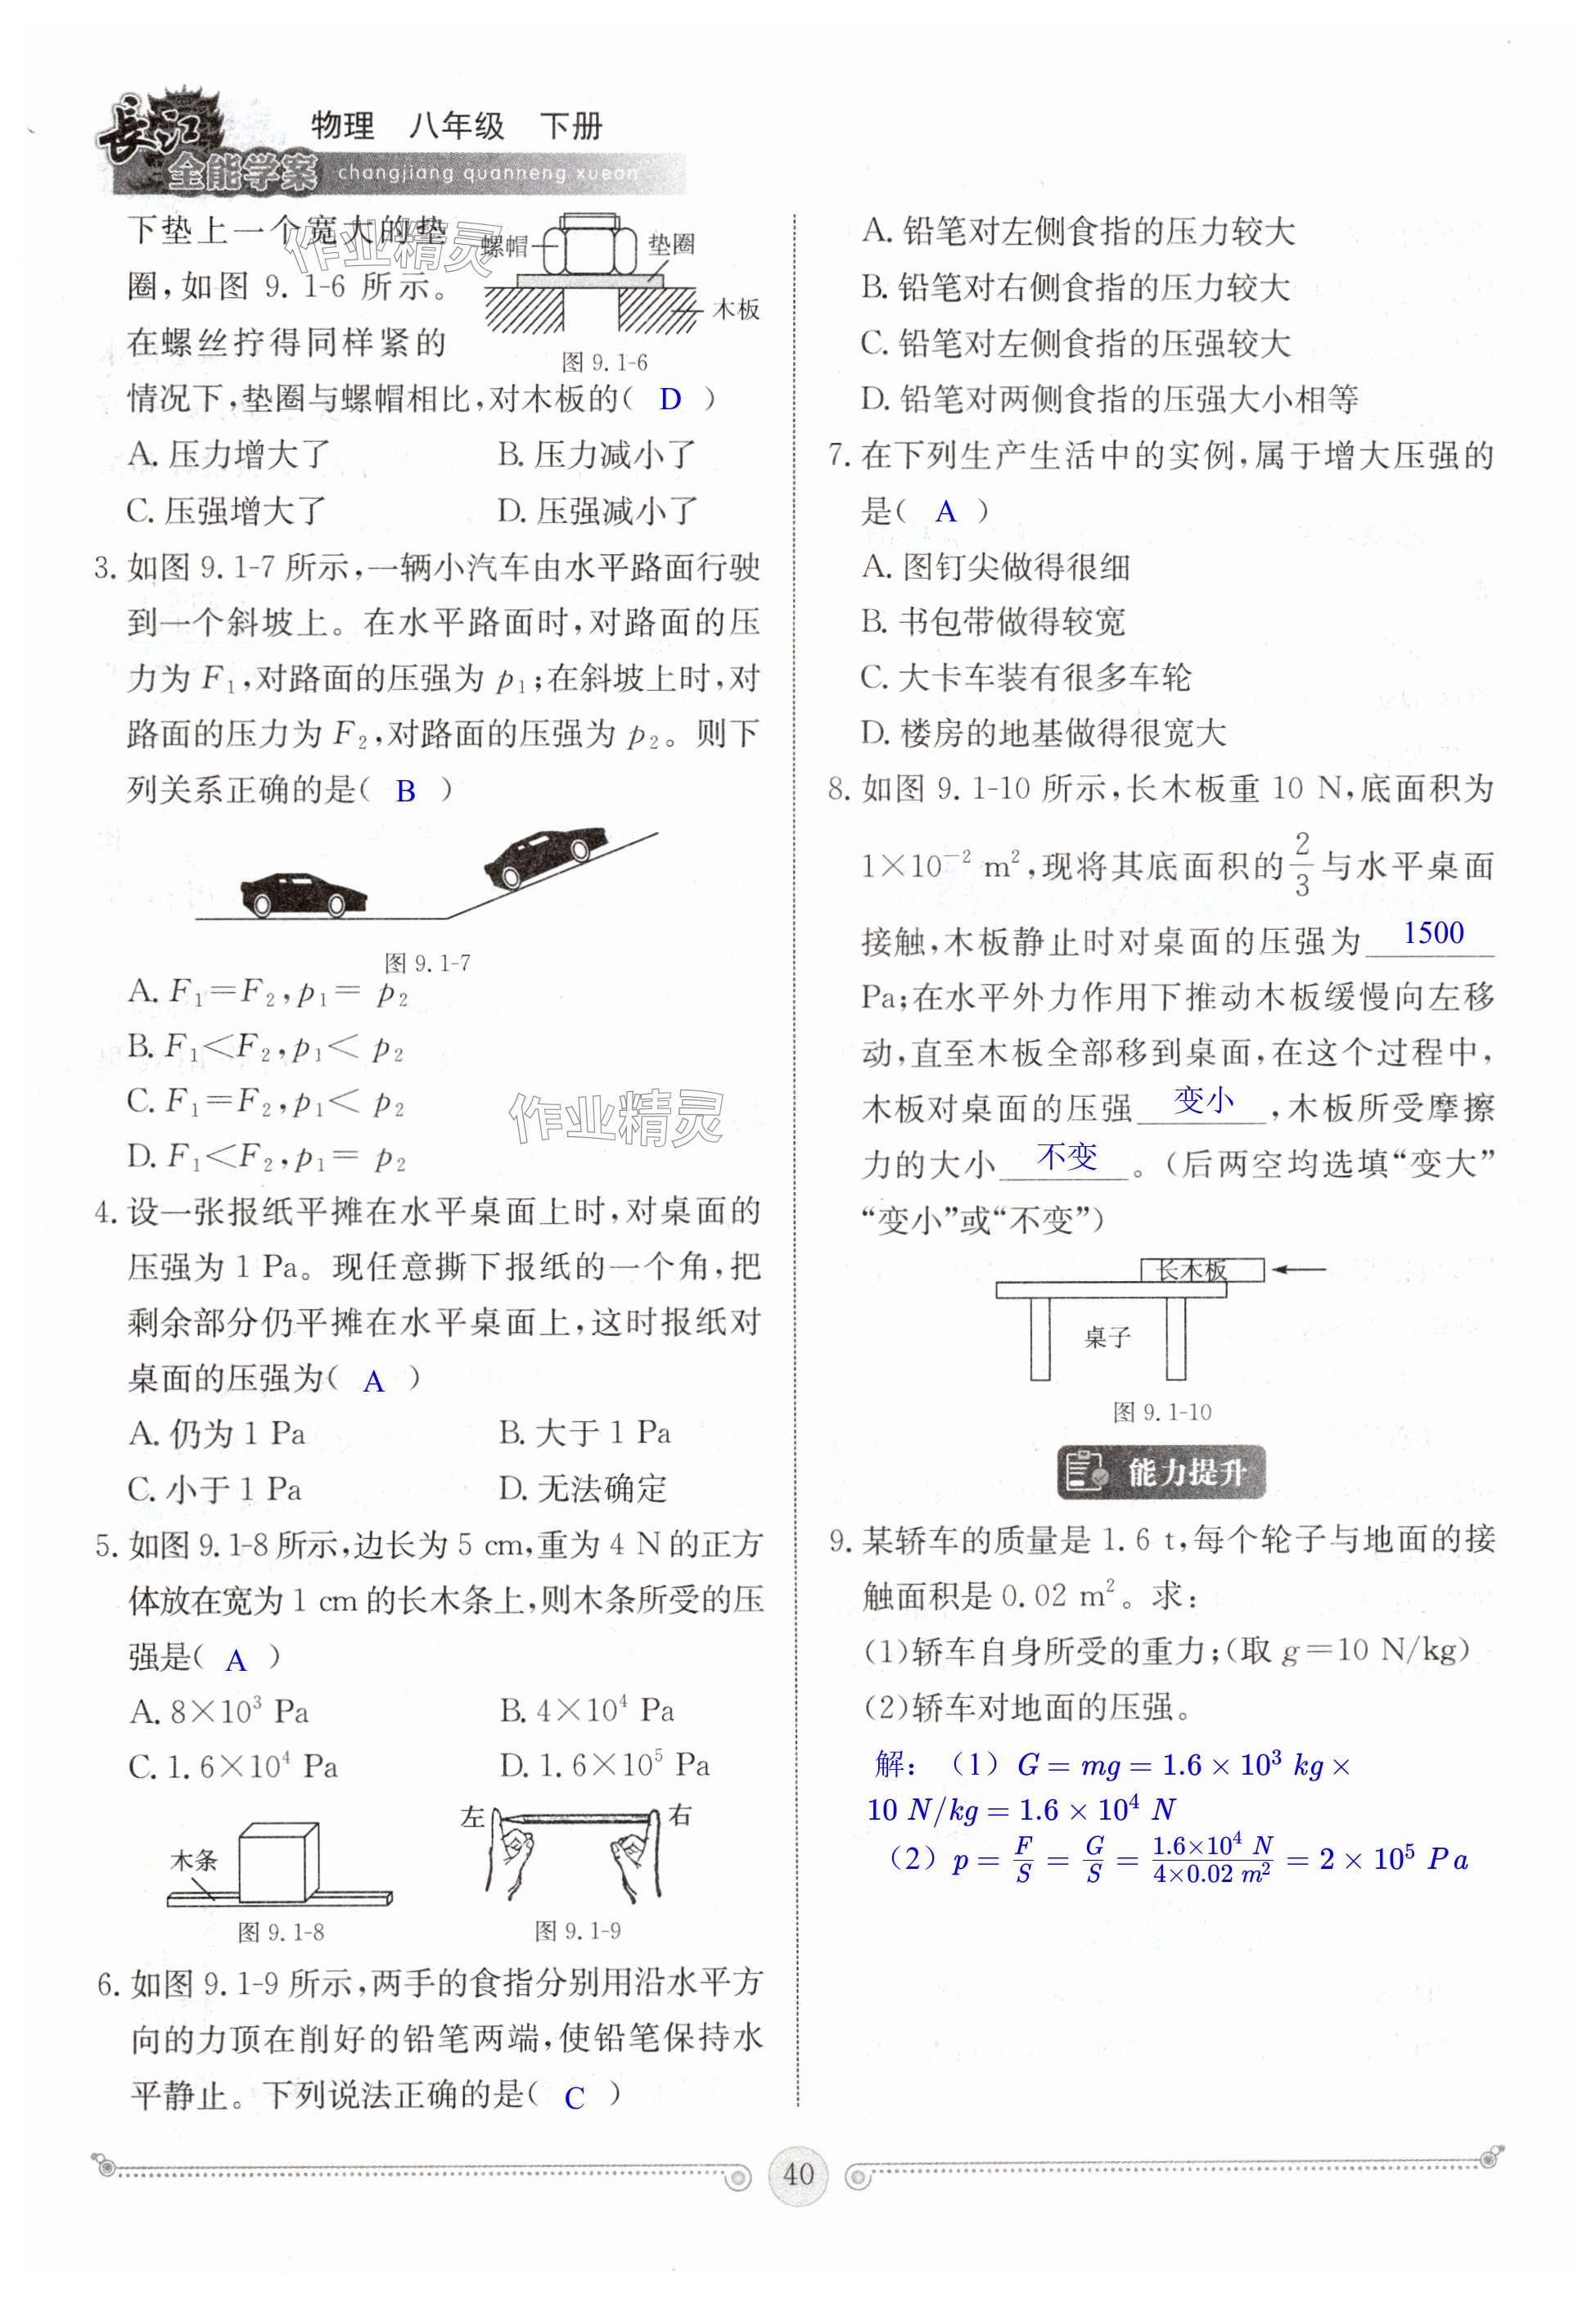 長江
全能学案
物理 八年级 下册
changjiang quanneng xuean
下垫上一个宽大的垫
圈,如图 9.1-6 所示。
在螺丝拧得同样紧的
螺帽
垫圈
木板
图 9.1-6
情况下,垫圈与螺帽相比,对木板的( D )
A. 压力增大了 B. 压力减小了
C. 压强增大了 D. 压强减小了
3. 如图 9.1-7 所示,一辆小汽车由水平路面行驶
到一个斜坡上。在水平路面时,对路面的压
力为 F₁,对路面的压强为 p₁;在斜坡上时,对
路面的压力为 F₂,对路面的压强为 p₂。则下
列关系正确的是( B )
图 9.1-7
A. F₁=F₂,p₁= p₂
B. F₁<F₂,p₁< p₂
C. F₁=F₂,p₁< p₂
D. F₁<F₂,p₁= p₂
4. 设一张报纸平摊在水平桌面上时,对桌面的
压强为 1 Pa。现任意撕下报纸的一个角,把
剩余部分仍平摊在水平桌面上,这时报纸对
桌面的压强为( A )
A. 仍为 1 Pa B. 大于 1 Pa
C. 小于 1 Pa D. 无法确定
5. 如图 9.1-8 所示,边长为 5 cm,重为 4 N 的正方
体放在宽为 1 cm 的长木条上,则木条所受的压
强是( A )
A. 8×10³ Pa B. 4×10⁴ Pa
C. 1.6×10⁴ Pa D. 1.6×10⁵ Pa
木条
左
右
图 9.1-8 图 9.1-9
6. 如图 9.1-9 所示,两手的食指分别用沿水平方
向的力顶在削好的铅笔两端,使铅笔保持水
平静止。下列说法正确的是( C )
A. 铅笔对左侧食指的压力较大
B. 铅笔对右侧食指的压力较大
C. 铅笔对左侧食指的压强较大
D. 铅笔对两侧食指的压强大小相等
7. 在下列生产生活中的实例,属于增大压强的
是( A )
A. 图钉尖做得很细
B. 书包带做得较宽
C. 大卡车装有很多车轮
D. 楼房的地基做得很宽大
8. 如图 9.1-10 所示,长木板重 10 N,底面积为
1×10⁻² m²,现将其底面积的 2/3 与水平桌面
接触,木板静止时对桌面的压强为 1500
Pa;在水平外力作用下推动木板缓慢向左移
动,直至木板全部移到桌面,在这个过程中,
木板对桌面的压强 变小 ,木板所受摩擦
力的大小 不变 。(后两空均选填“变大”
“变小”或“不变”)
长木板
桌子
图 9.1-10
能力提升
9. 某轿车的质量是 1.6 t,每个轮子与地面的接
触面积是 0.02 m²。求:
(1)轿车自身所受的重力;(取 g=10 N/kg)
(2)轿车对地面的压强。
解:(1)G = mg = 1.6 × 10³ kg ×
10 N/kg = 1.6 × 10⁴ N
(2)p = F/S = G/S = 1.6×10⁴ N/4×0.02 m² = 2 × 10⁵ Pa
40
作业精灵
作业精灵